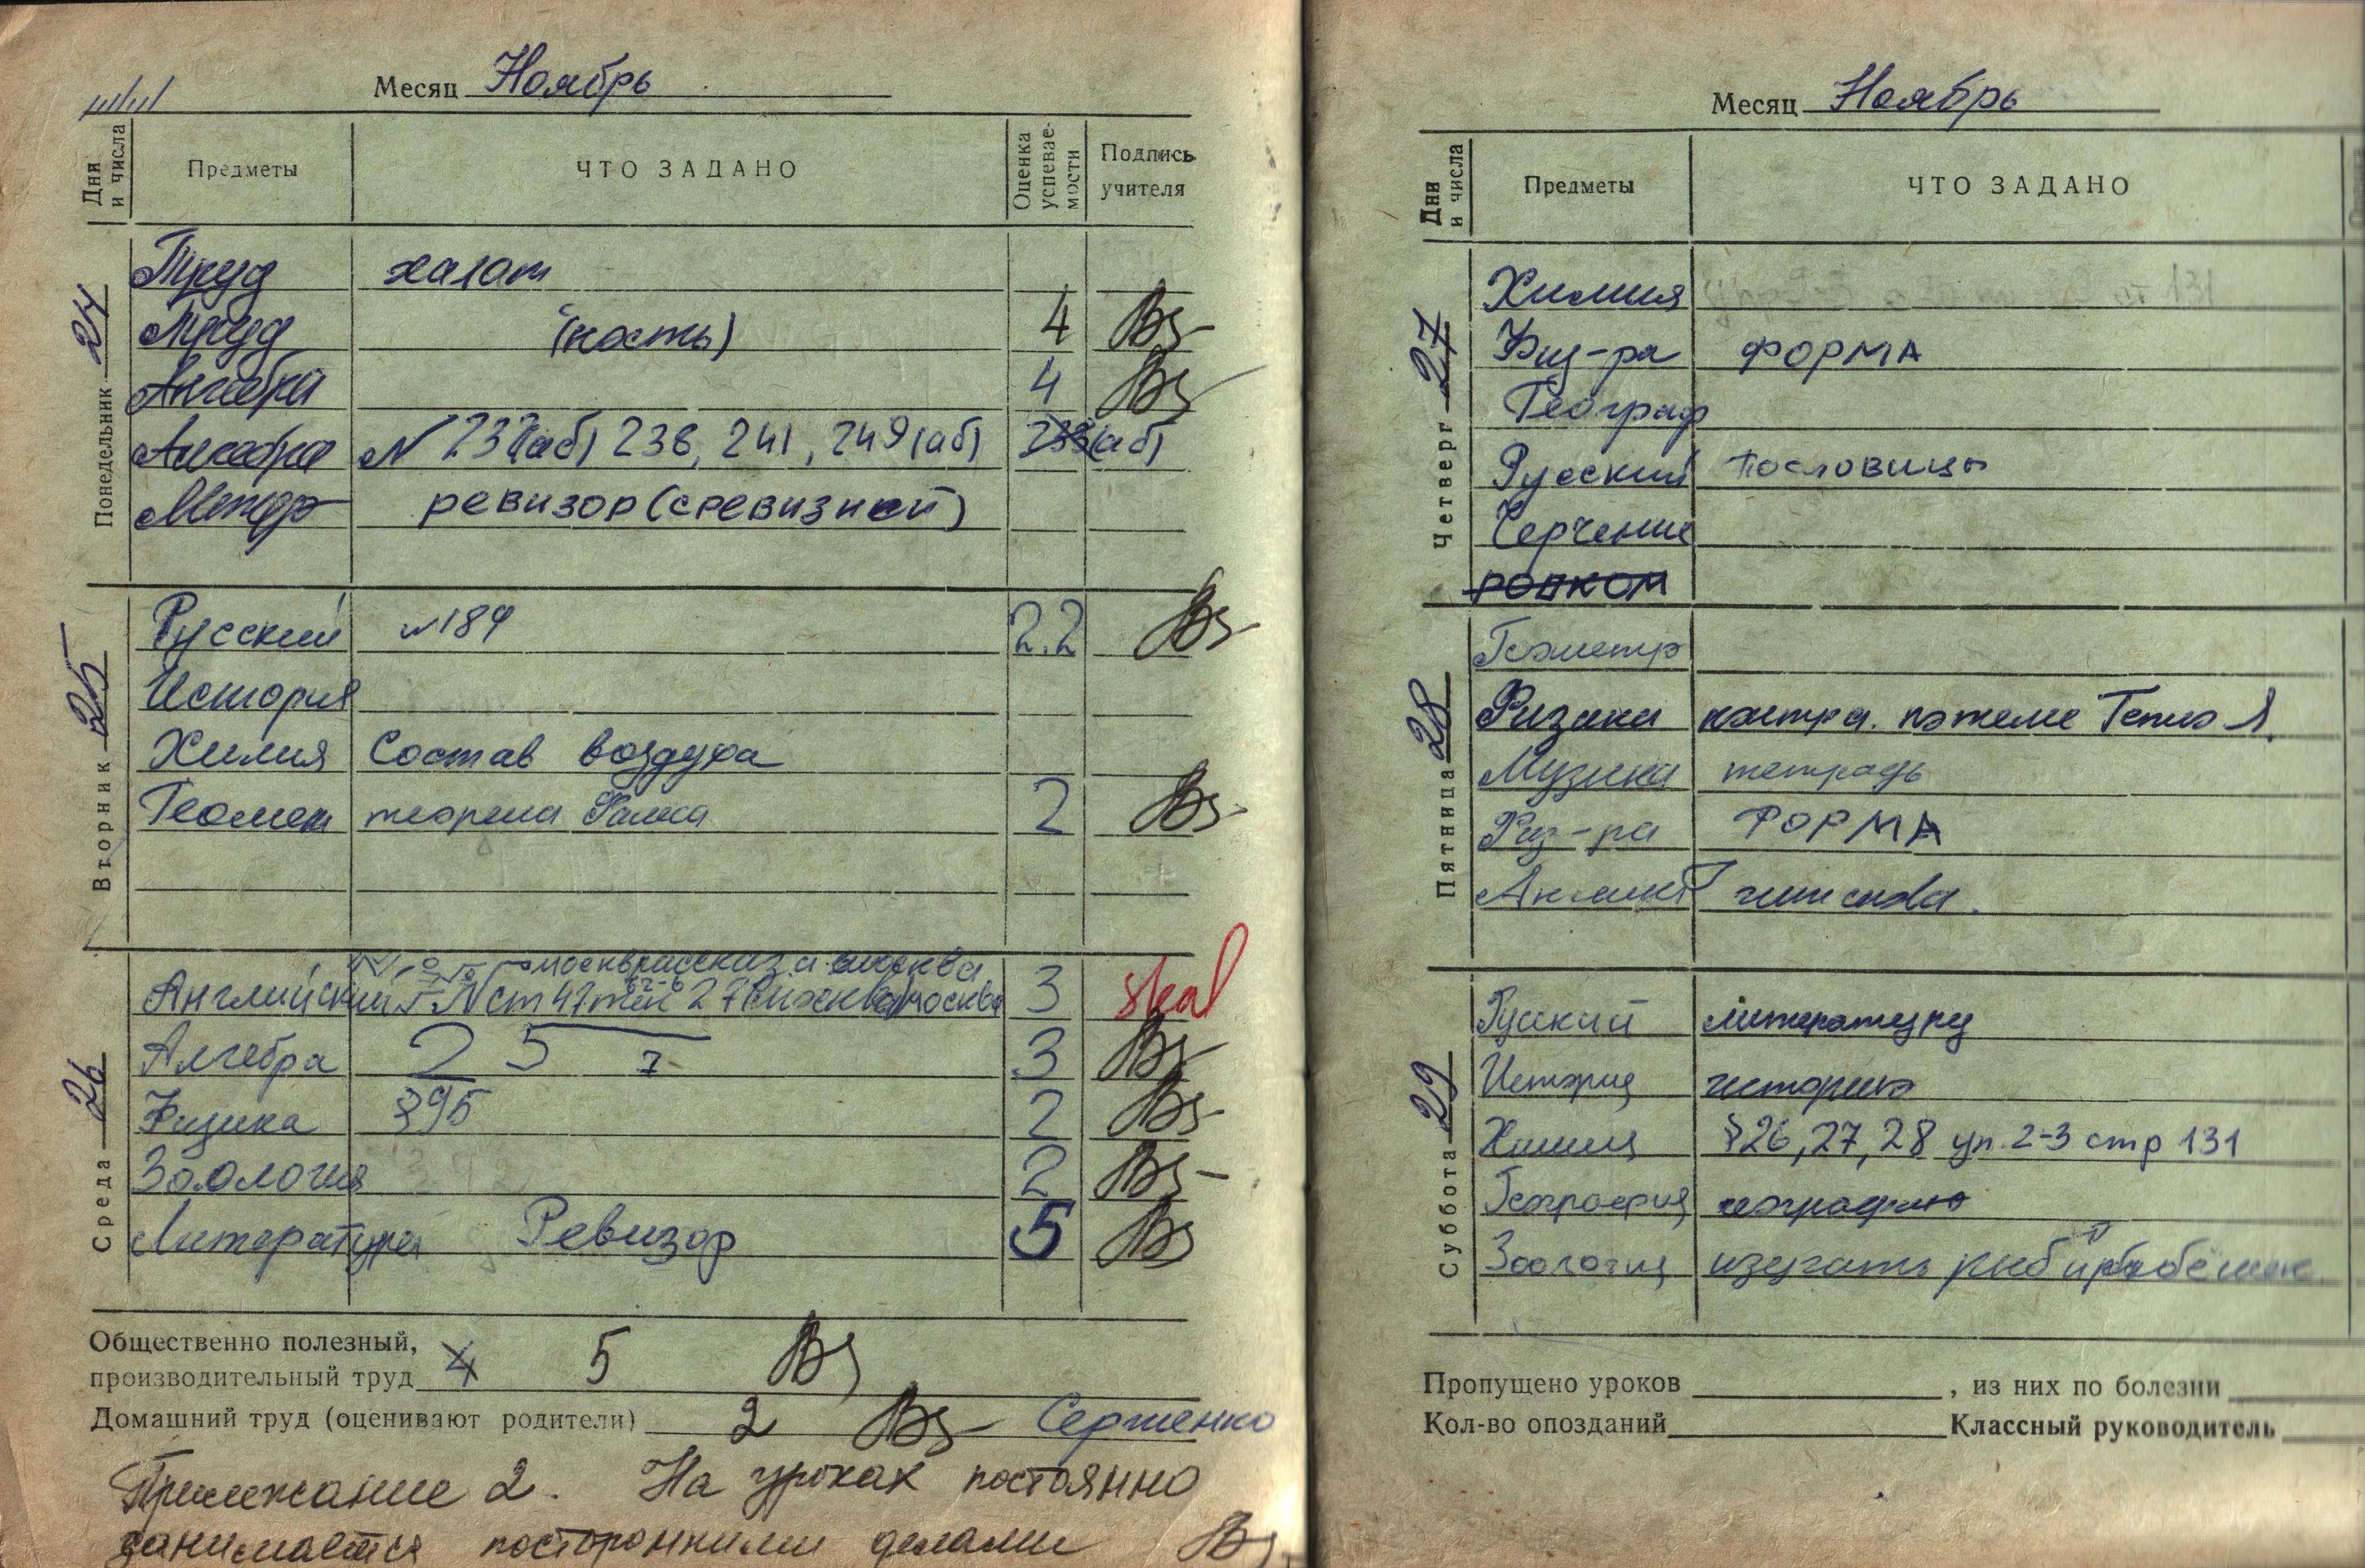 Месяц Ноябрь
Дни и числа
Предметы
ЧТО ЗАДАНО
Оценка успевае-мости
Подпись учителя
Понедельник 24
Труд халат
Труд (кость) 4
Алгебра 4
Алгебра N 237(аб) 238, 241, 249(аб) (аб)
Литер ревизор (
Вторник 25
Русский N 189 2.2
История
Химия Состав воздуха
Геомет теорема Фалеса 2
Среда 26
москв рассказ а москва
Английский ст 47 27 москва 3
Алгебра 2 5 3
Физика §95 2
Зоология 2
Литература Ревизор 5
Общественно полезный,
производительный труд 4 5
Домашний труд (оценивают родители) 2 Серженко
Прилежание 2. На уроках постоянно
занимается посторонними делами
Месяц Ноябрь
Дни и числа
Предметы
ЧТО ЗАДАНО
Четверг 27
Химия
Физ-ра ФОРМА
Географ
Русский пословицы
Черчение
РОДКОМ
Пятница 28
Геометр
Физика контр. по теме Тепло
Музика тетрадь
Физ-ра ФОРМА
Англист
Суббота 29
Русский литературу
История историю
Химия §26, 27, 28 уп. 2-3 стр 131
География географию
Зоология изучать рыб
Пропущено уроков , из них по болезни
Кол-во опозданий Классный руководитель